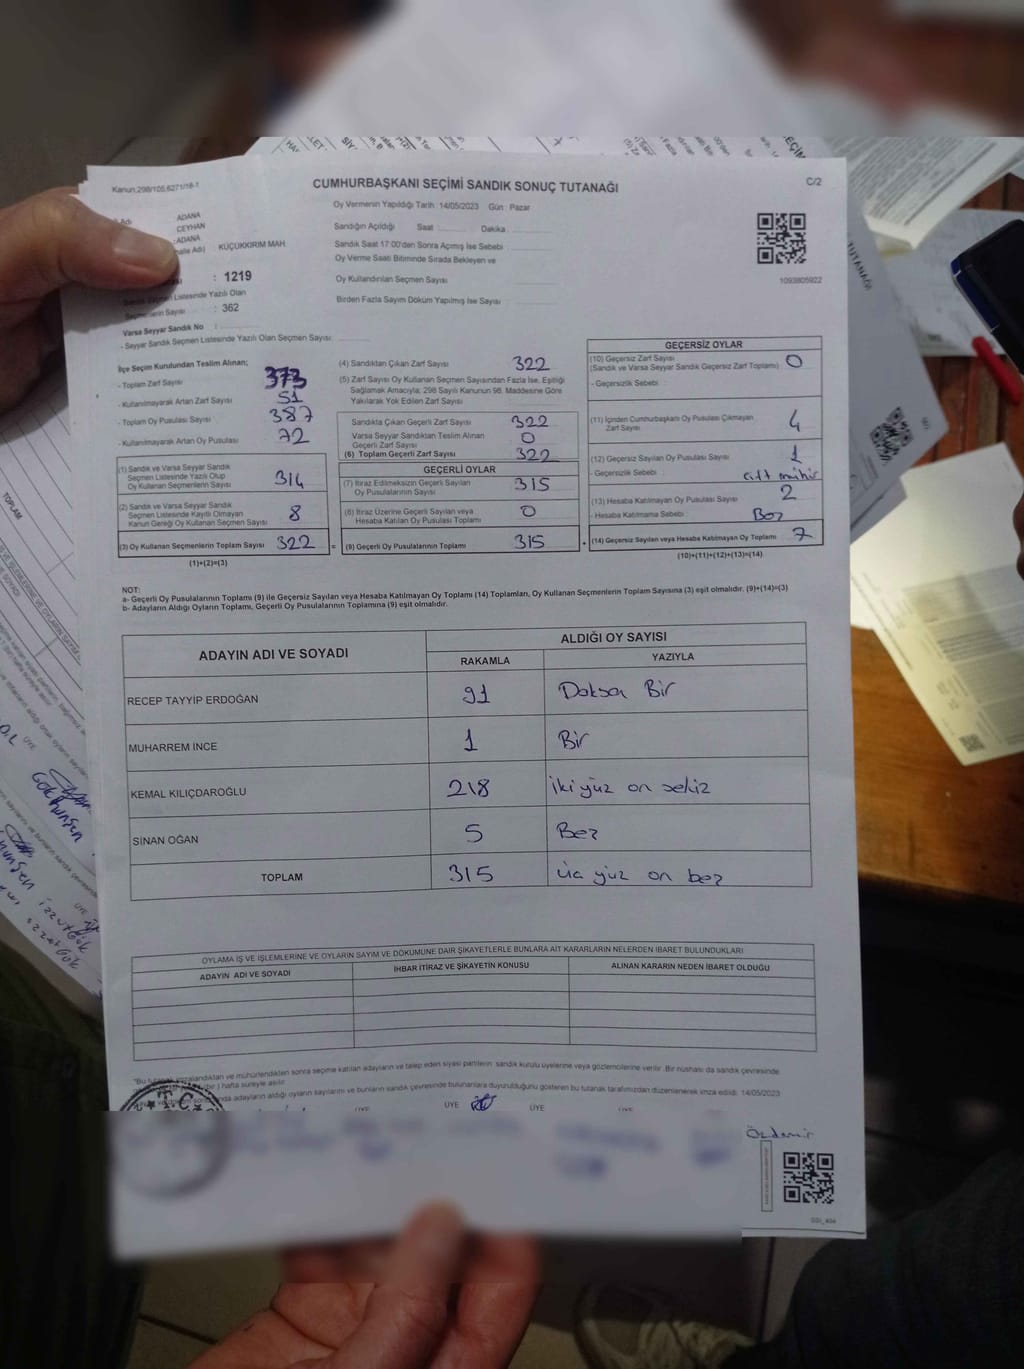 Kanun,298/105,6271/16-1
CUMHURBAŞKANI SEÇİMİ SANDIK SONUÇ TUTANAĞI
C/2
Oy Vermenin Yapıldığı Tarih :14/05/2023 Gün : Pazar
ADANA
CEYHAN
:ADANA
KÜÇÜKKIRIM MAH
: 1219
Sandık Seçmen Listesinde Yazılı Olan
Seçmenlerin Sayısı : 362
Varsa Seyyar Sandık No :
- Seyyar Sandık Seçmen Listesinde Yazılı Olan Seçmen Sayısı:
Sandığın Açıldığı Saat Dakika
Sandık Saat 17:00'den Sonra Açmış İse Sebebi
Oy Verme Saati Bitiminde Sırada Bekleyen ve
Oy Kullandırılan Seçmen Sayısı
Birden Fazla Sayım Döküm Yapılmış İse Sayısı
1093805922
İlçe Seçim Kurulundan Teslim Alınan;
- Toplam Zarf Sayısı 373
- Kullanılmayarak Artan Zarf Sayısı 51
- Toplam Oy Pusulası Sayısı 387
- Kullanılmayarak Artan Oy Pusulası 72
(1) Sandık ve Varsa Seyyar Sandık
Seçmen Listesinde Yazılı Olup
Oy Kullanan Seçmenlerin Sayısı 314
(2) Sandık ve Varsa Seyyar Sandık
Seçmen Listesinde Kayıtlı Olmayan
Kanun Gereği Oy Kullanan Seçmen Sayısı 8
(3) Oy Kullanan Seçmenlerin Toplam Sayısı 322
(1)+(2)=(3)
(4) Sandıktan Çıkan Zarf Sayısı 322
(5) Zarf Sayısı Oy Kullanan Seçmen Sayısından Fazla İse, Eşitliği
Sağlamak Amacıyla; 298 Sayılı Kanunun 98. Maddesine Göre
Yakılarak Yok Edilen Zarf Sayısı
Sandıkta Çıkan Geçerli Zarf Sayısı 322
Varsa Seyyar Sandıktan Teslim Alınan
Geçerli Zarf Sayısı 0
(6) Toplam Geçerli Zarf Sayısı 322
GEÇERLİ OYLAR
(7) İtiraz Edilmeksizin Geçerli Sayılan
Oy Pusulalarının Sayısı 315
(8) İtiraz Üzerine Geçerli Sayılan veya
Hesaba Katılan Oy Pusulası Toplamı 0
= (9) Geçerli Oy Pusulalarının Toplamı 315
GEÇERSİZ OYLAR
(10) Geçersiz Zarf Sayısı
(Sandık ve Varsa Seyyar Sandık Geçersiz Zarf Toplamı) 0
- Geçersizlik Sebebi :
(11) İçinden Cumhurbaşkanı Oy Pusulası Çıkmayan
Zarf Sayısı 4
(12) Geçersiz Sayılan Oy Pusulası Sayısı 1
- Geçersizlik Sebebi : çift mühür
(13) Hesaba Katılmayan Oy Pusulası Sayısı 2
- Hesaba Katılmama Sebebi : Boş
+ (14) Geçersiz Sayılan veya Hesaba Katılmayan Oy Toplamı 7
(10)+(11)+(12)+(13)=(14)
NOT:
a- Geçerli Oy Pusulalarının Toplamı (9) ile Geçersiz Sayılan veya Hesaba Katılmayan Oy Toplamı (14) Toplamları, Oy Kullanan Seçmenlerin Toplam Sayısına (3) eşit olmalıdır. (9)+(14)=(3)
b- Adayların Aldığı Oyların Toplamı, Geçerli Oy Pusulalarının Toplamına (9) eşit olmalıdır.
ADAYIN ADI VE SOYADI
ALDIĞI OY SAYISI
RAKAMLA YAZIYLA
RECEP TAYYİP ERDOĞAN 91 Doksan Bir
MUHARREM İNCE 1 Bir
KEMAL KILIÇDAROĞLU 218 iki yüz on sekiz
SİNAN OĞAN 5 Beş
TOPLAM 315 üç yüz on beş
OYLAMA İŞ VE İŞLEMLERİNE VE OYLARIN SAYIM VE DÖKÜMÜNE DAİR ŞİKAYETLERLE BUNLARA AİT KARARLARIN NELERDEN İBARET BULUNDUKLARI
ADAYIN ADI VE SOYADI İHBAR İTİRAZ VE ŞİKAYETİN KONUSU ALINAN KARARIN NEDEN İBARET OLDUĞU
seçime katılan adayların ve talep eden siyasi partilerin sandık kurulu üyelerine veya gözlemcilerine verilir. Bir nüshası da sandık çevresinde
) hafta süreyle asılır.
adayların aldığı oyların sayılarını ve bunların sandık çevresinde bulunanlara duyurulduğunu gösteren bu tutanak tarafımızdan düzenlenerek imza edildi. 14/05/2023
ÜYE ÜYE ÜYE ÜYE
T.C.
Özdemir